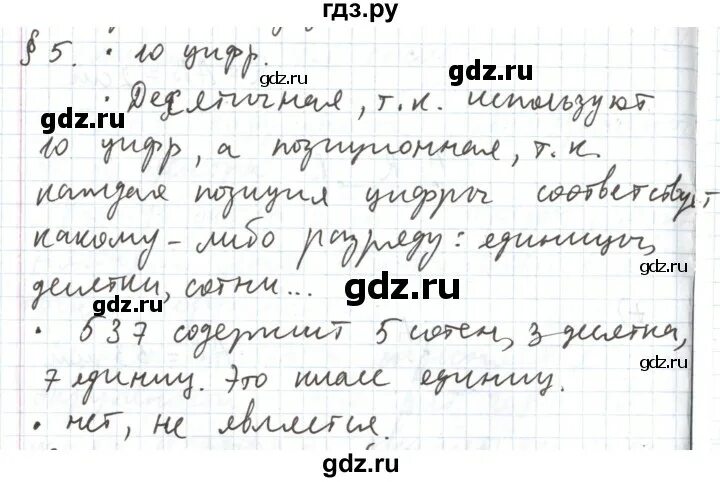 гдз.ру
§ 5. • 10 цифр.
gdz.ru
• Десятичная, т.к. используют
gdz.ru
10 цифр, а позиционная, т.к.
каждая позиция цифры соответствует
какому-либо разряду: единицы,
десятки, сотни...
gdz.ru gdz.ru
• 537 содержит 5 сотен, 3 десятка,
7 единиц. Это класс единиц.
• нет, не является.
gdz.ru
gdz.ru